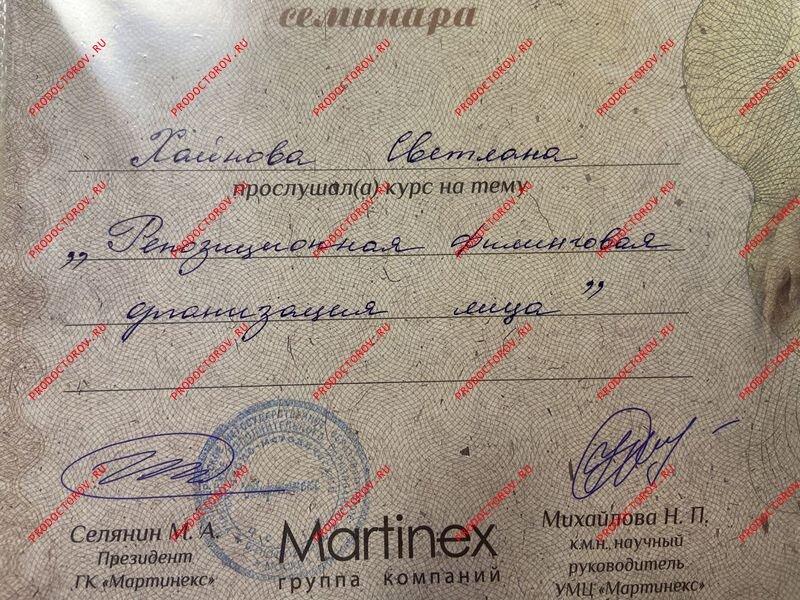 семинара
Хайнова Светлана
прослушал(а) курс на тему
„Репозиционная филинговая
организация лица”
Селянин М. А.
Президент
ГК «Мартинекс»
Martinex
группа компаний
Михайлова Н. П.
к.м.н., научный
руководитель
УМЦ «Мартинекс»
PRODOCTOROV.RU